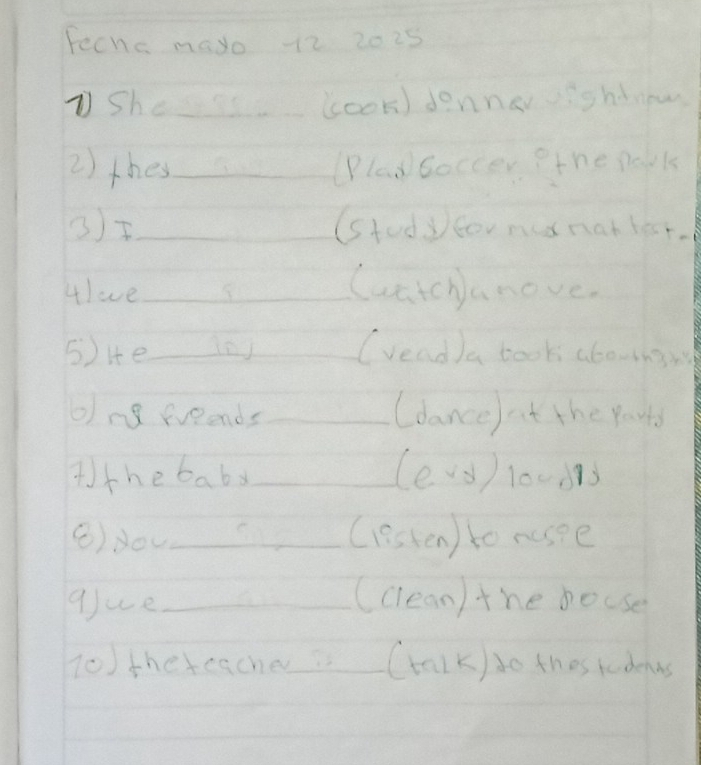 Fecha mayo 12 2025
1) She ______ (cook) dinner right now
2) they ______ (Play) Soccer i the park
3) I ______ (study) for my mat test.
4) we ______ (watch) a move.
5) He ______ (read) a book
6) my friends ______ (dance) at the party
7) the baby ______ (cry) loudly
8) you ______ (listen) to music
9) we ______ (clean) the house
10) the teacher ______ (talk) to the students